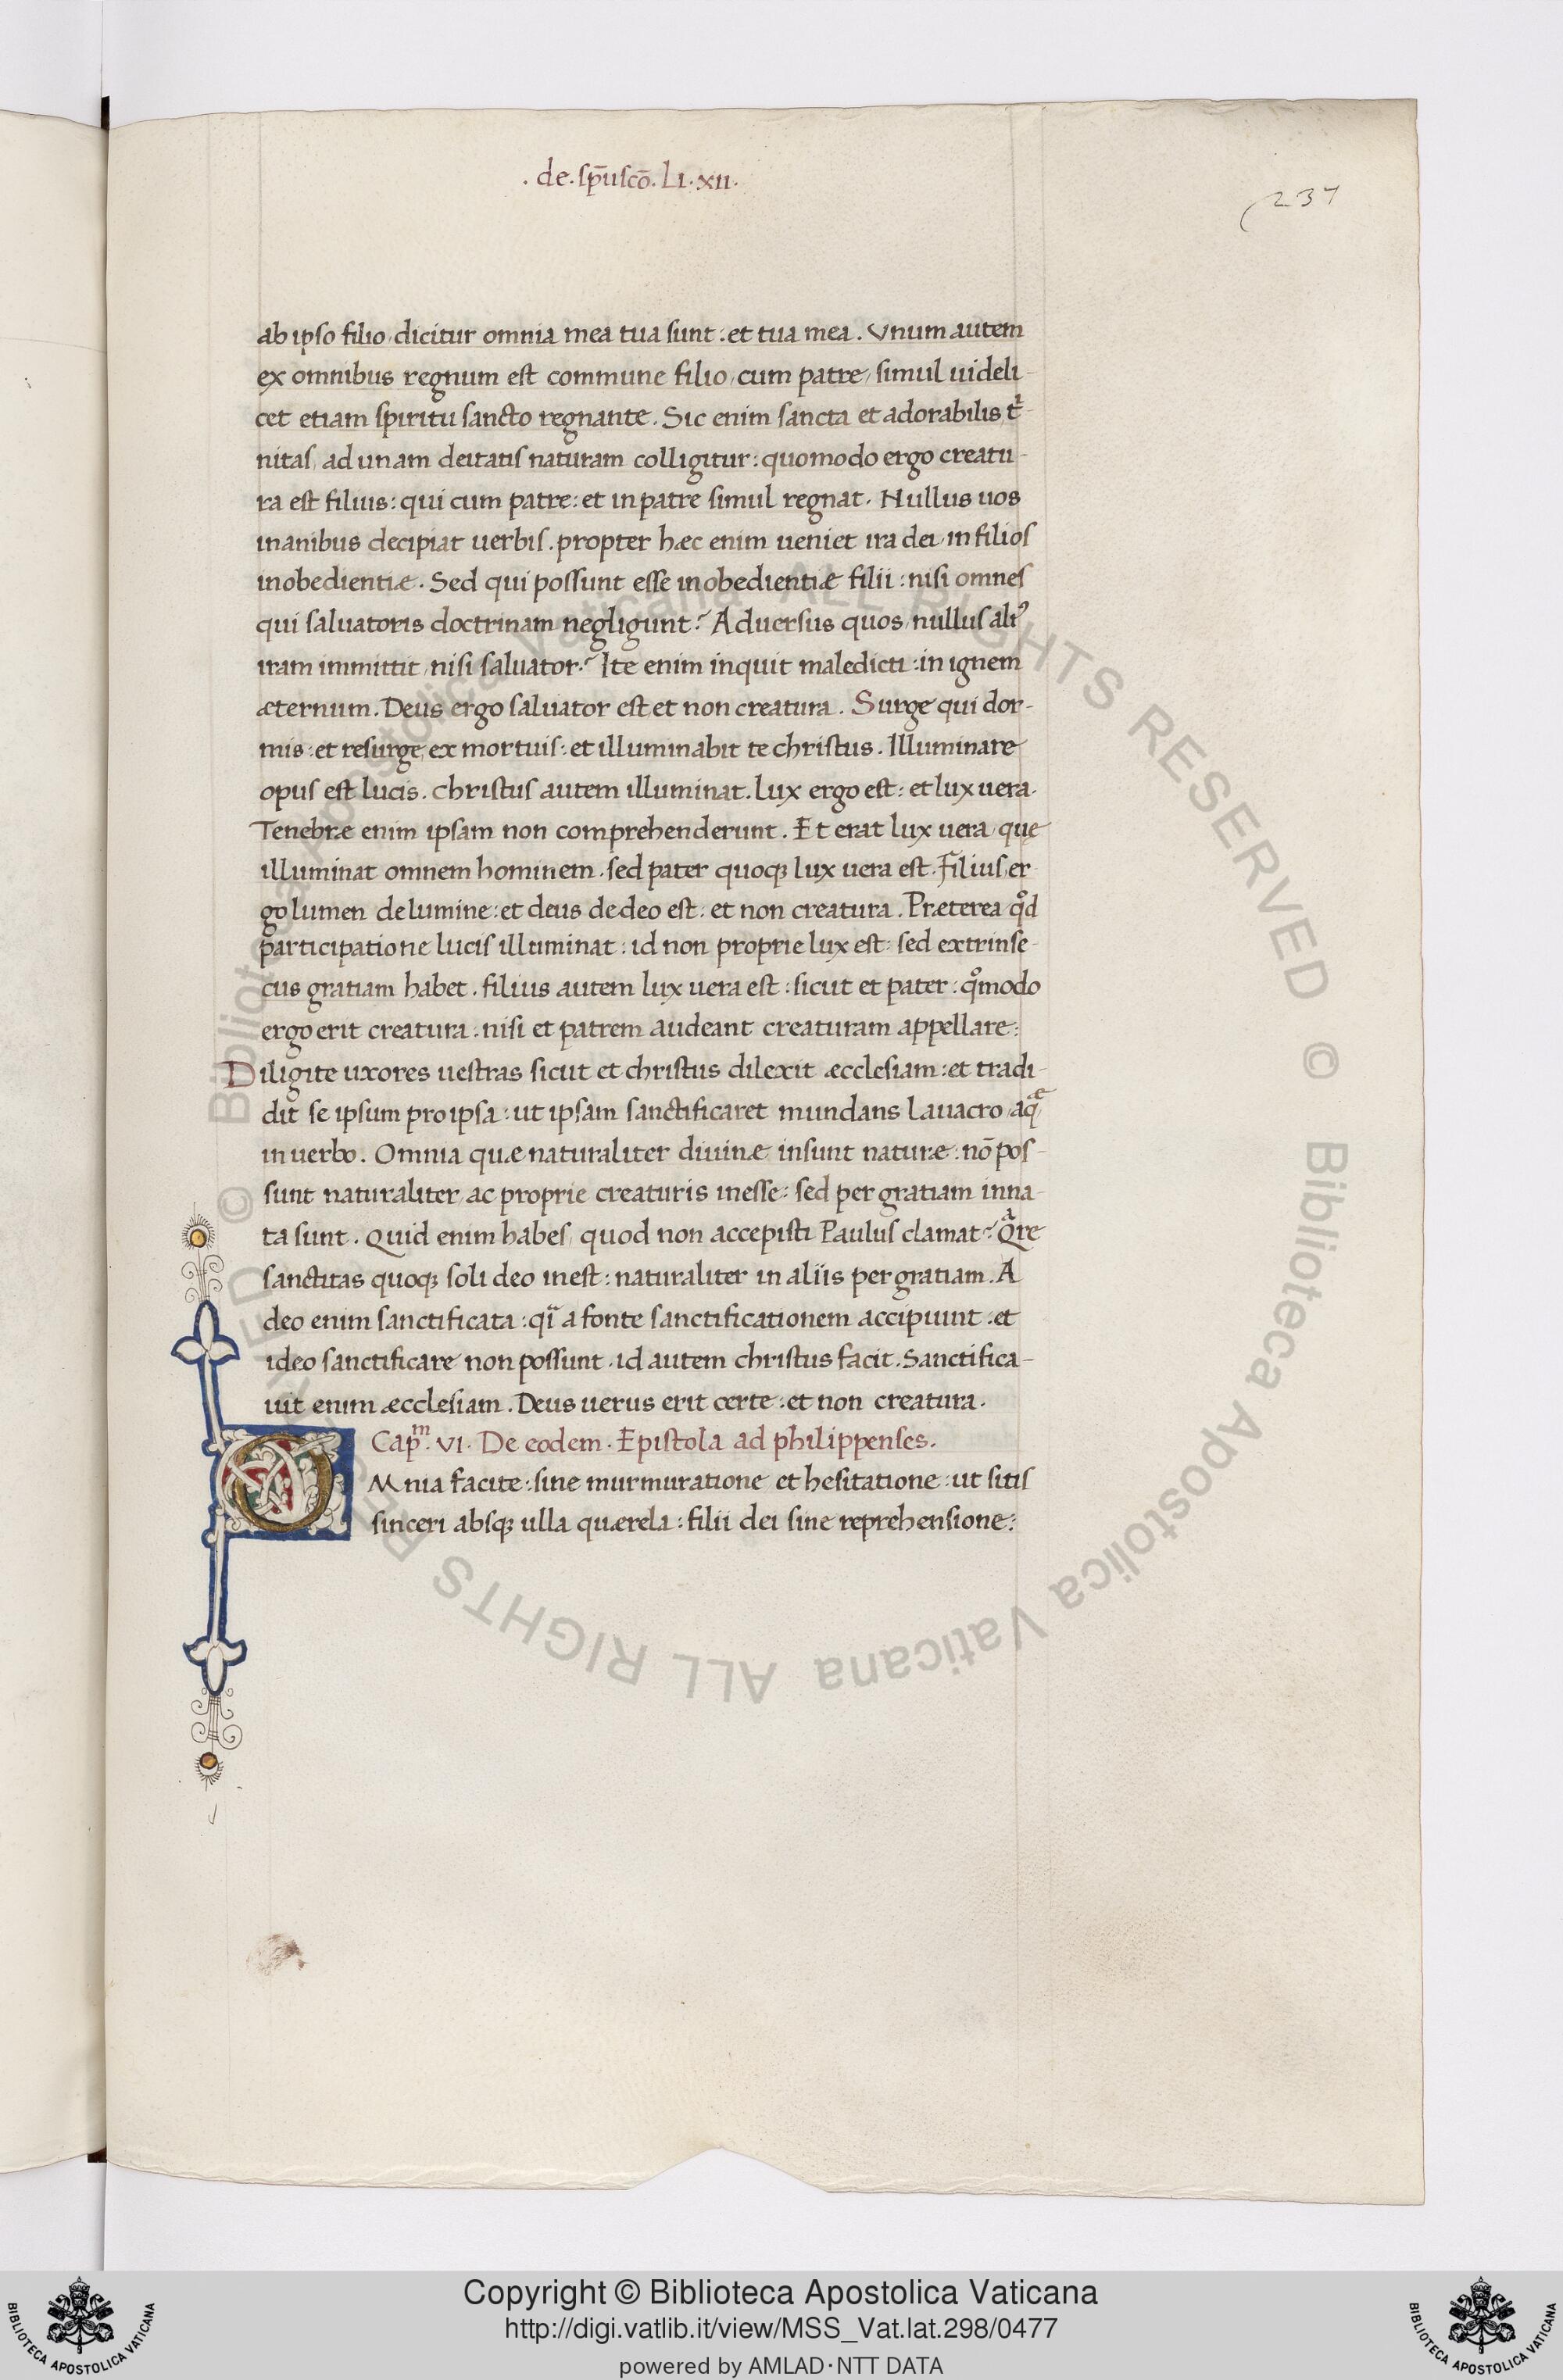 . de . sp̄uscō . Li . xii .
237
ab ipso filio dicitur omnia mea tua sunt : et tua mea . Vnum autem
ex omnibus regnum est commune filio cum patre, simul uideli-
cet etiam spiritu sancto regnante . Sic enim sancta et adorabilis tⁱ-
nitas, ad unam deitatis naturam colligitur : quomodo ergo creatu-
ra est filius : qui cum patre : et in patre simul regnat . Nullus uos
inanibus decipiat uerbis . propter hæc enim ueniet ira dei in filios
inobedientiæ . Sed qui possunt esse inobedientiæ filii : nisi omnes
qui saluatoris doctrinam negligunt ? Aduersus quos, nullus aliꝰ
iram immittit, nisi saluator ? Ite enim inquit maledicti : in ignem
æternum . Deus ergo saluator est et non creatura . Surge qui dor-
mis : et resurge, ex mortuis : et illuminabit te christus . Illuminare
opus est lucis . christus autem illuminat . Lux ergo est : et lux uera .
Tenebræ enim ipsam non comprehenderunt . Et erat lux uera, quę
illuminat omnem hominem . sed pater quoqꝫ lux uera est . Filius er
go lumen de lumine : et deus de deo est : et non creatura . Præterea qͦd
participatione lucis illuminat : id non proprie lux est : sed extrinse-
cus gratiam habet . filius autem lux uera est : sicut et pater : qͦmodo
ergo erit creatura : nisi et patrem audeant creaturam appellare :
Diligite uxores uestras sicut et christus dilexit æcclesiam : et tradi-
dit se ipsum pro ipsa : ut ipsam sanctificaret mundans lauacro aqͣꝫ
in uerbo . Omnia quæ naturaliter diuinæ insunt naturæ : nō pos-
sunt naturaliter ac proprie creaturis inesse : sed per gratiam inna-
ta sunt . Quid enim habes, quod non accepisti Paulus clamat ? Qͣre
sanctitas quoqꝫ soli deo inest : naturaliter in aliis per gratiam . A
deo enim sanctificata : qī a fonte sanctificationem accipiunt : et
ideo sanctificare non possunt . id autem christus facit . Sanctifica-
uit enim æcclesiam . Deus uerus erit certe : et non creatura .
Capᵐ . VI . De eodem . Epistola ad philippenses .
OMnia facite : sine murmuratione et hesitatione : ut sitis
sinceri absqꝫ ulla quærela : filii dei sine reprehensione :
© Biblioteca Apostolica Vaticana ALL RIGHTS RESERVED © Biblioteca Apostolica Vaticana ALL RIGHTS RESERVED
Copyright © Biblioteca Apostolica Vaticana
http://digi.vatlib.it/view/MSS_Vat.lat.298/0477
powered by AMLAD·NTT DATA
BIBLIOTECA APOSTOLICA VATICANA
BIBLIOTECA APOSTOLICA VATICANA